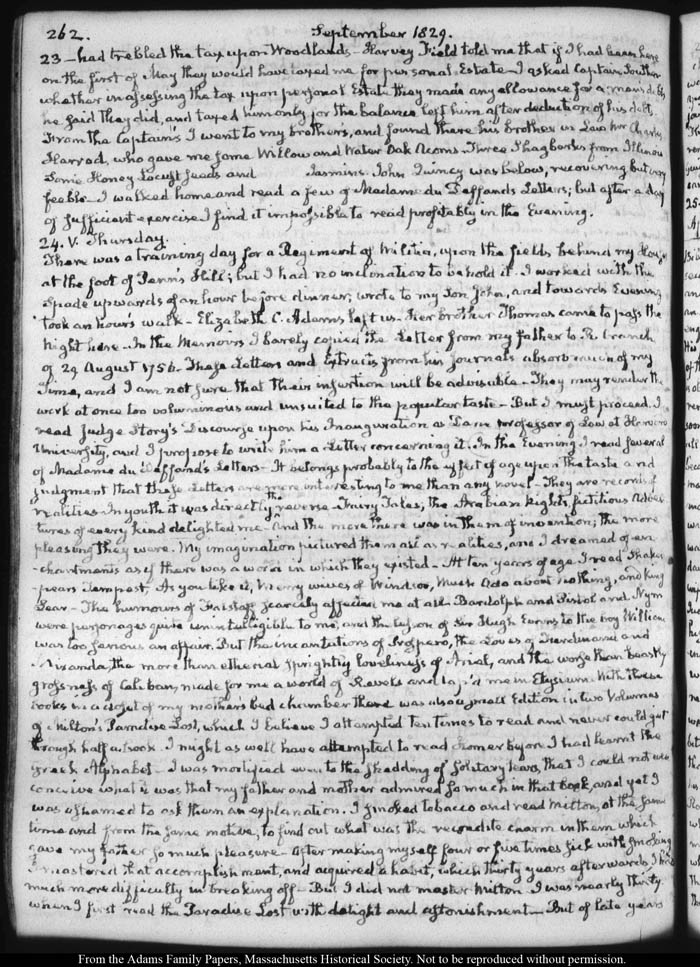 262. September 1829.
23 — had trebled the tax upon Woodlands — Harvey Field told me that if I had been here
on the first of May they would have taxed me for personal Estate — I asked Captain Souther
whether in assessing the tax upon personal Estate they made any allowance for a man's debts
he said they did, and taxed him only for the balance left him after deduction of his debt.
From the Captain's I went to my brothers, and found there his brother in Law Mr Charles
Harrod, who gave me some Willow and Water Oak Acorns. Three Shagbarks from Illinois
Some Honey Locust seeds and Jasmins. John Quincy was below, recovering but very
feeble — I walked home and read a few of Madame du Deffands Letters; but after a day
of sufficient exercise I find it impossible to read profitably in the Evening.
24. V. Thursday.
There was a training day for a Regiment of Militia, upon the fields behind my House
at the foot of Penn's Hill; but I had no inclination to behold it. I worked with the
spade upwards of an hour before dinner; wrote to my Son John, and towards Evening
took an hour's walk — Elizabeth C. Adams left us. Her brother Thomas came to pass the
Night here — In the Memoirs I barely copied the Letter from my father to R. Cranch
of 29 August 1756. These Letters and Extracts from his Journals absorb much of my
Time, and I am not sure that their insertion will be advisable — They may render the
work at once too voluminous and unsuited to the popular taste — But I must proceed. I
read Judge Story's Discourse upon his Inauguration as Dane professor of Law at Harvard
University, and I propose to write him a Letter concerning it. In the Evening I read several
of Madame du Deffand's Letters — It belongs probably to the effect of age upon the taste and
judgment that these Letters are more interesting to me than any novel — They are records of
realities. In youth it was directly the reverse — Fairy Tales; the Arabian Nights, fictitious Adven
tures of every kind delighted me — And the more there was in them of invention; the more
pleasing they were. My imagination pictured them all as realities, and I dreamed of en-
-chantments as if there was a world in which they existed — At ten years of age I read Shakes
-pears Tempest, As you like it, Merry wives of Windsor, Much Ado about nothing, and King
Lear — The humours of Falstaff scarcely affected me at all. Bardolph and Pistol and Nym
were personages quite unintelligible to me; and the lesson of Sir Hugh Evans to the boy William
was too serious an affair. But the incantations of Prospero, the Loves of Ferdinand and
Miranda, the more than etherial sprightly loveliness of Ariel, and the worse than beastly
grossness of Caliban, made for me a world of Revels and lap'd me in Elysium. With these
books in a closet of my mothers bed chamber there was also a small Edition in two Volumes
of Milton's Paradise Lost, which I believe I attempted ten times to read and never could get
through half a book. I might as well have attempted to read Homer before I had learnt the
Greek Alphabet — I was mortified even to the shedding of solitary tears, that I could not even
conceive what it was that my father and mother admired so much in that book, and yet I
was ashamed to ask them an explanation. I smoked tobacco and read Milton, at the same
time and from the same motive, to find out what was the recondite charm in them which
gave my father so much pleasure — After making myself four or five times sick with smoking
I mastered that accomplishment, and acquired a habit, which thirty years afterwards I had
much more difficulty in breaking off — But I did not master Milton. I was nearly thirty
when I first read the Paradise Lost with delight and astonishment — But of late years
From the Adams Family Papers, Massachusetts Historical Society. Not to be reproduced without permission.